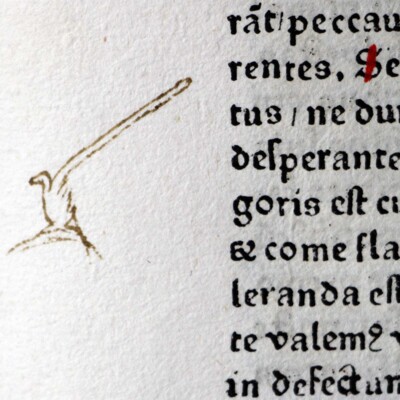 rāt/peccau
rentes. Se
tus/ne dur
desperante
goris est cu
& come fla
leranda est
te valemꝰ v
in defectun